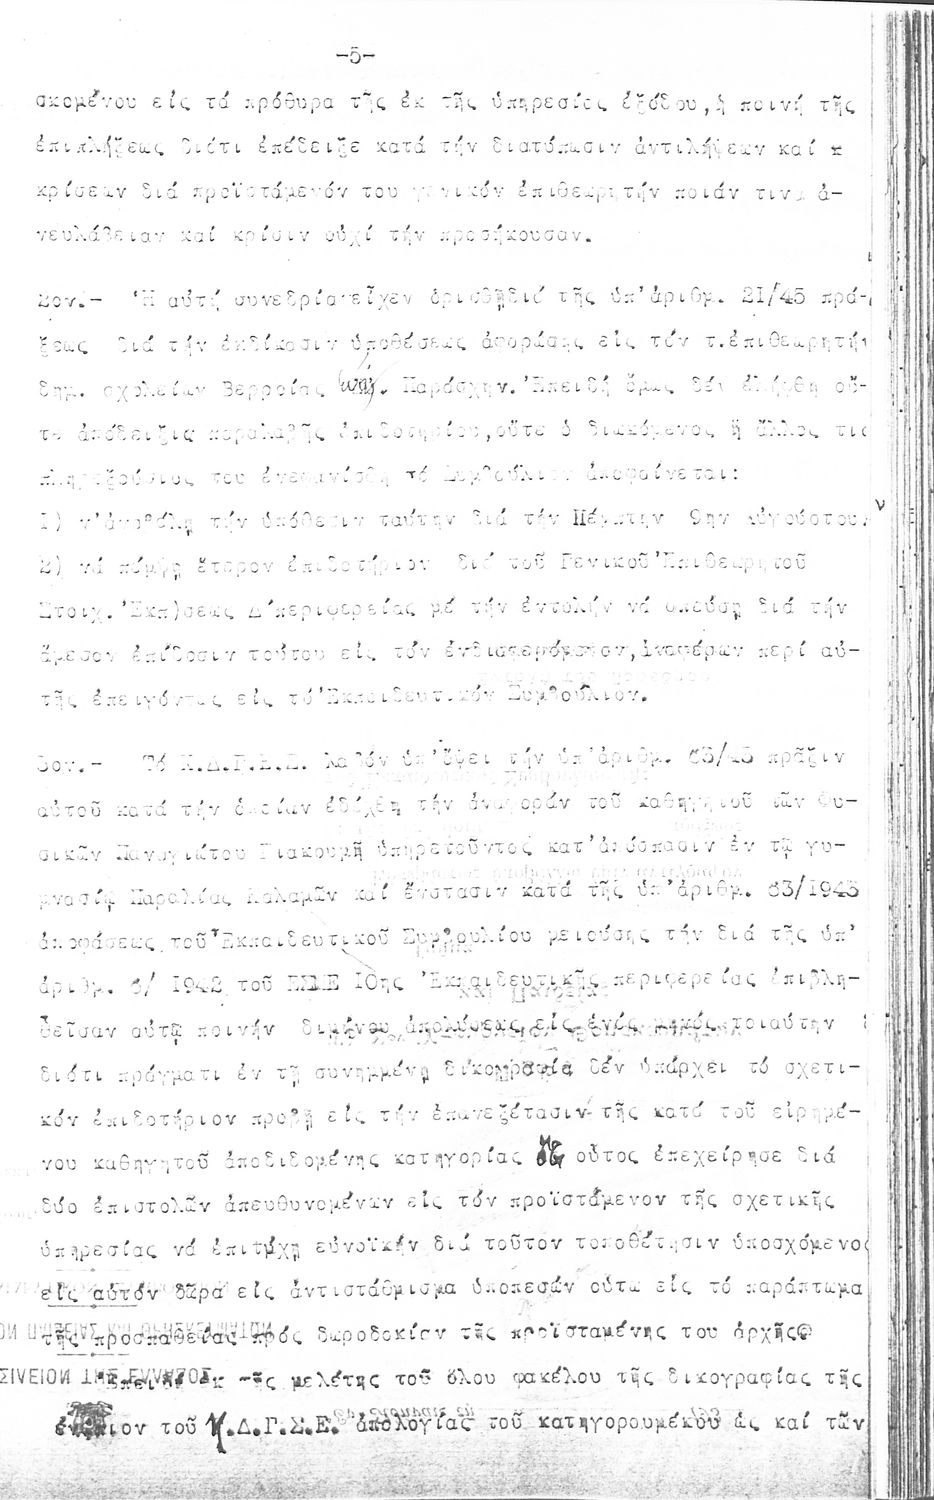 -5-
σκομένου εἰς τά πρόθυρα τῆς ἐκ τῆς ὑπηρεσίας ἐξόδου, ἡ ποινή τῆς
ἐπιπλήξεως διότι ἐπέδειξε κατά τήν διατύπωσιν ἀντιλήψεων καί
κρίσεων διά προϊστάμενόν του γενικόν ἐπιθεωρητήν ποιάν τινα ἀ-
νευλάβειαν καί κρίσιν οὐχί τήν προσήκουσαν.
2ον.- Ἡ αὐτή συνεδρία εἶχεν ὁρισθῆ διά τῆς ὑπ' ἀριθμ. 21/45 πρά-
ξεως διά τήν ἐκδίκασιν ὑποθέσεως ἀφορώσης εἰς τόν τ. ἐπιθεωρητήν
δημ. σχολείων Βερροίας Παράσχην. Ἐπειδή ὅμως δέν ἐλήφθη οὔ-
τε ἀπόδειξις παραλαβῆς ἐπιδοτηρίου, οὔτε ὁ διωκόμενος ἤ ἄλλος τις
πληρεξούσιος του ἐνεφανίσθη τό Συμβούλιον ἀποφαίνεται:
I) ν' ἀναβάλῃ τήν ὑπόθεσιν ταύτην διά τήν Πέμπτην 9ην Αὐγούστου
2) νά πέμψῃ ἕτερον ἐπιδοτήριον διά τοῦ Γενικοῦ Ἐπιθεωρητοῦ
Στοιχ. Ἐκπ)σεως Δ' περιφερείας μέ τήν ἐντολήν νά σπεύσῃ διά τήν
ἄμεσον ἐπίδοσιν τούτου εἰς τόν ἐνδιαφερόμενον, ἀναφέρων περί αὐ-
τῆς ἐπειγόντως εἰς τό Ἐκπαιδευτικόν Συμβούλιον.
3ον.- Τό Κ.Δ.Γ.Σ.Ε. λαβόν ὑπ' ὄψει τήν ὑπ' ἀριθμ. 63/43 πρᾶξιν
αὐτοῦ κατά τήν ὁποίαν ἐδέχθη τήν ἀναφοράν τοῦ καθηγητοῦ τῶν Φυ-
σικῶν Παναγιώτου Γιακουμῆ ὑπηρετοῦντος κατ' ἀπόσπασιν ἐν τῷ γυ-
μνασίῳ Παραλίας Καλαμῶν καί ἔνστασιν κατά τῆς ὑπ' ἀριθμ. 63/1943
ἀποφάσεως τοῦ Ἐκπαιδευτικοῦ Συμβουλίου μειούσης τήν διά τῆς ὑπ'
ἀριθμ. 6/ 1942 τοῦ ΕΣΜΕ 10ης Ἐκπαιδευτικῆς περιφερείας ἐπιβλη-
θεῖσαν αὐτῷ ποινήν διμήνου ἀπολύσεως εἰς ἑνός μηνός τοιαύτην
διότι πράγματι ἐν τῇ συνημμένῃ δικογραφίᾳ δέν ὑπάρχει τό σχετι-
κόν ἐπιδοτήριον προβῇ εἰς τήν ἐπανεξέτασιν τῆς κατά τοῦ εἰρημέ-
νου καθηγητοῦ ἀποδιδομένης κατηγορίας οὗτος ἐπεχείρησε διά
δύο ἐπιστολῶν ἀπευθυνομένων εἰς τόν προϊστάμενον τῆς σχετικῆς
ὑπηρεσίας νά ἐπιτύχῃ εὐνοϊκήν διά τοῦτον τοποθέτησιν ὑποσχόμενος
εἰς αὐτόν δῶρα εἰς ἀντιστάθμισμα ὑποπεσών οὕτω εἰς τό παράπτωμα
τῆς προσπαθείας πρός δωροδοκίαν τῆς προϊσταμένης του ἀρχῆς
Ἐπειδή ἐκ τῆς μελέτης τοῦ ὅλου φακέλου τῆς δικογραφίας τῆς
ἐνώπιον τοῦ Κ.Δ.Γ.Σ.Ε. ἀπολογίας τοῦ κατηγορουμένου ὡς καί τῶν